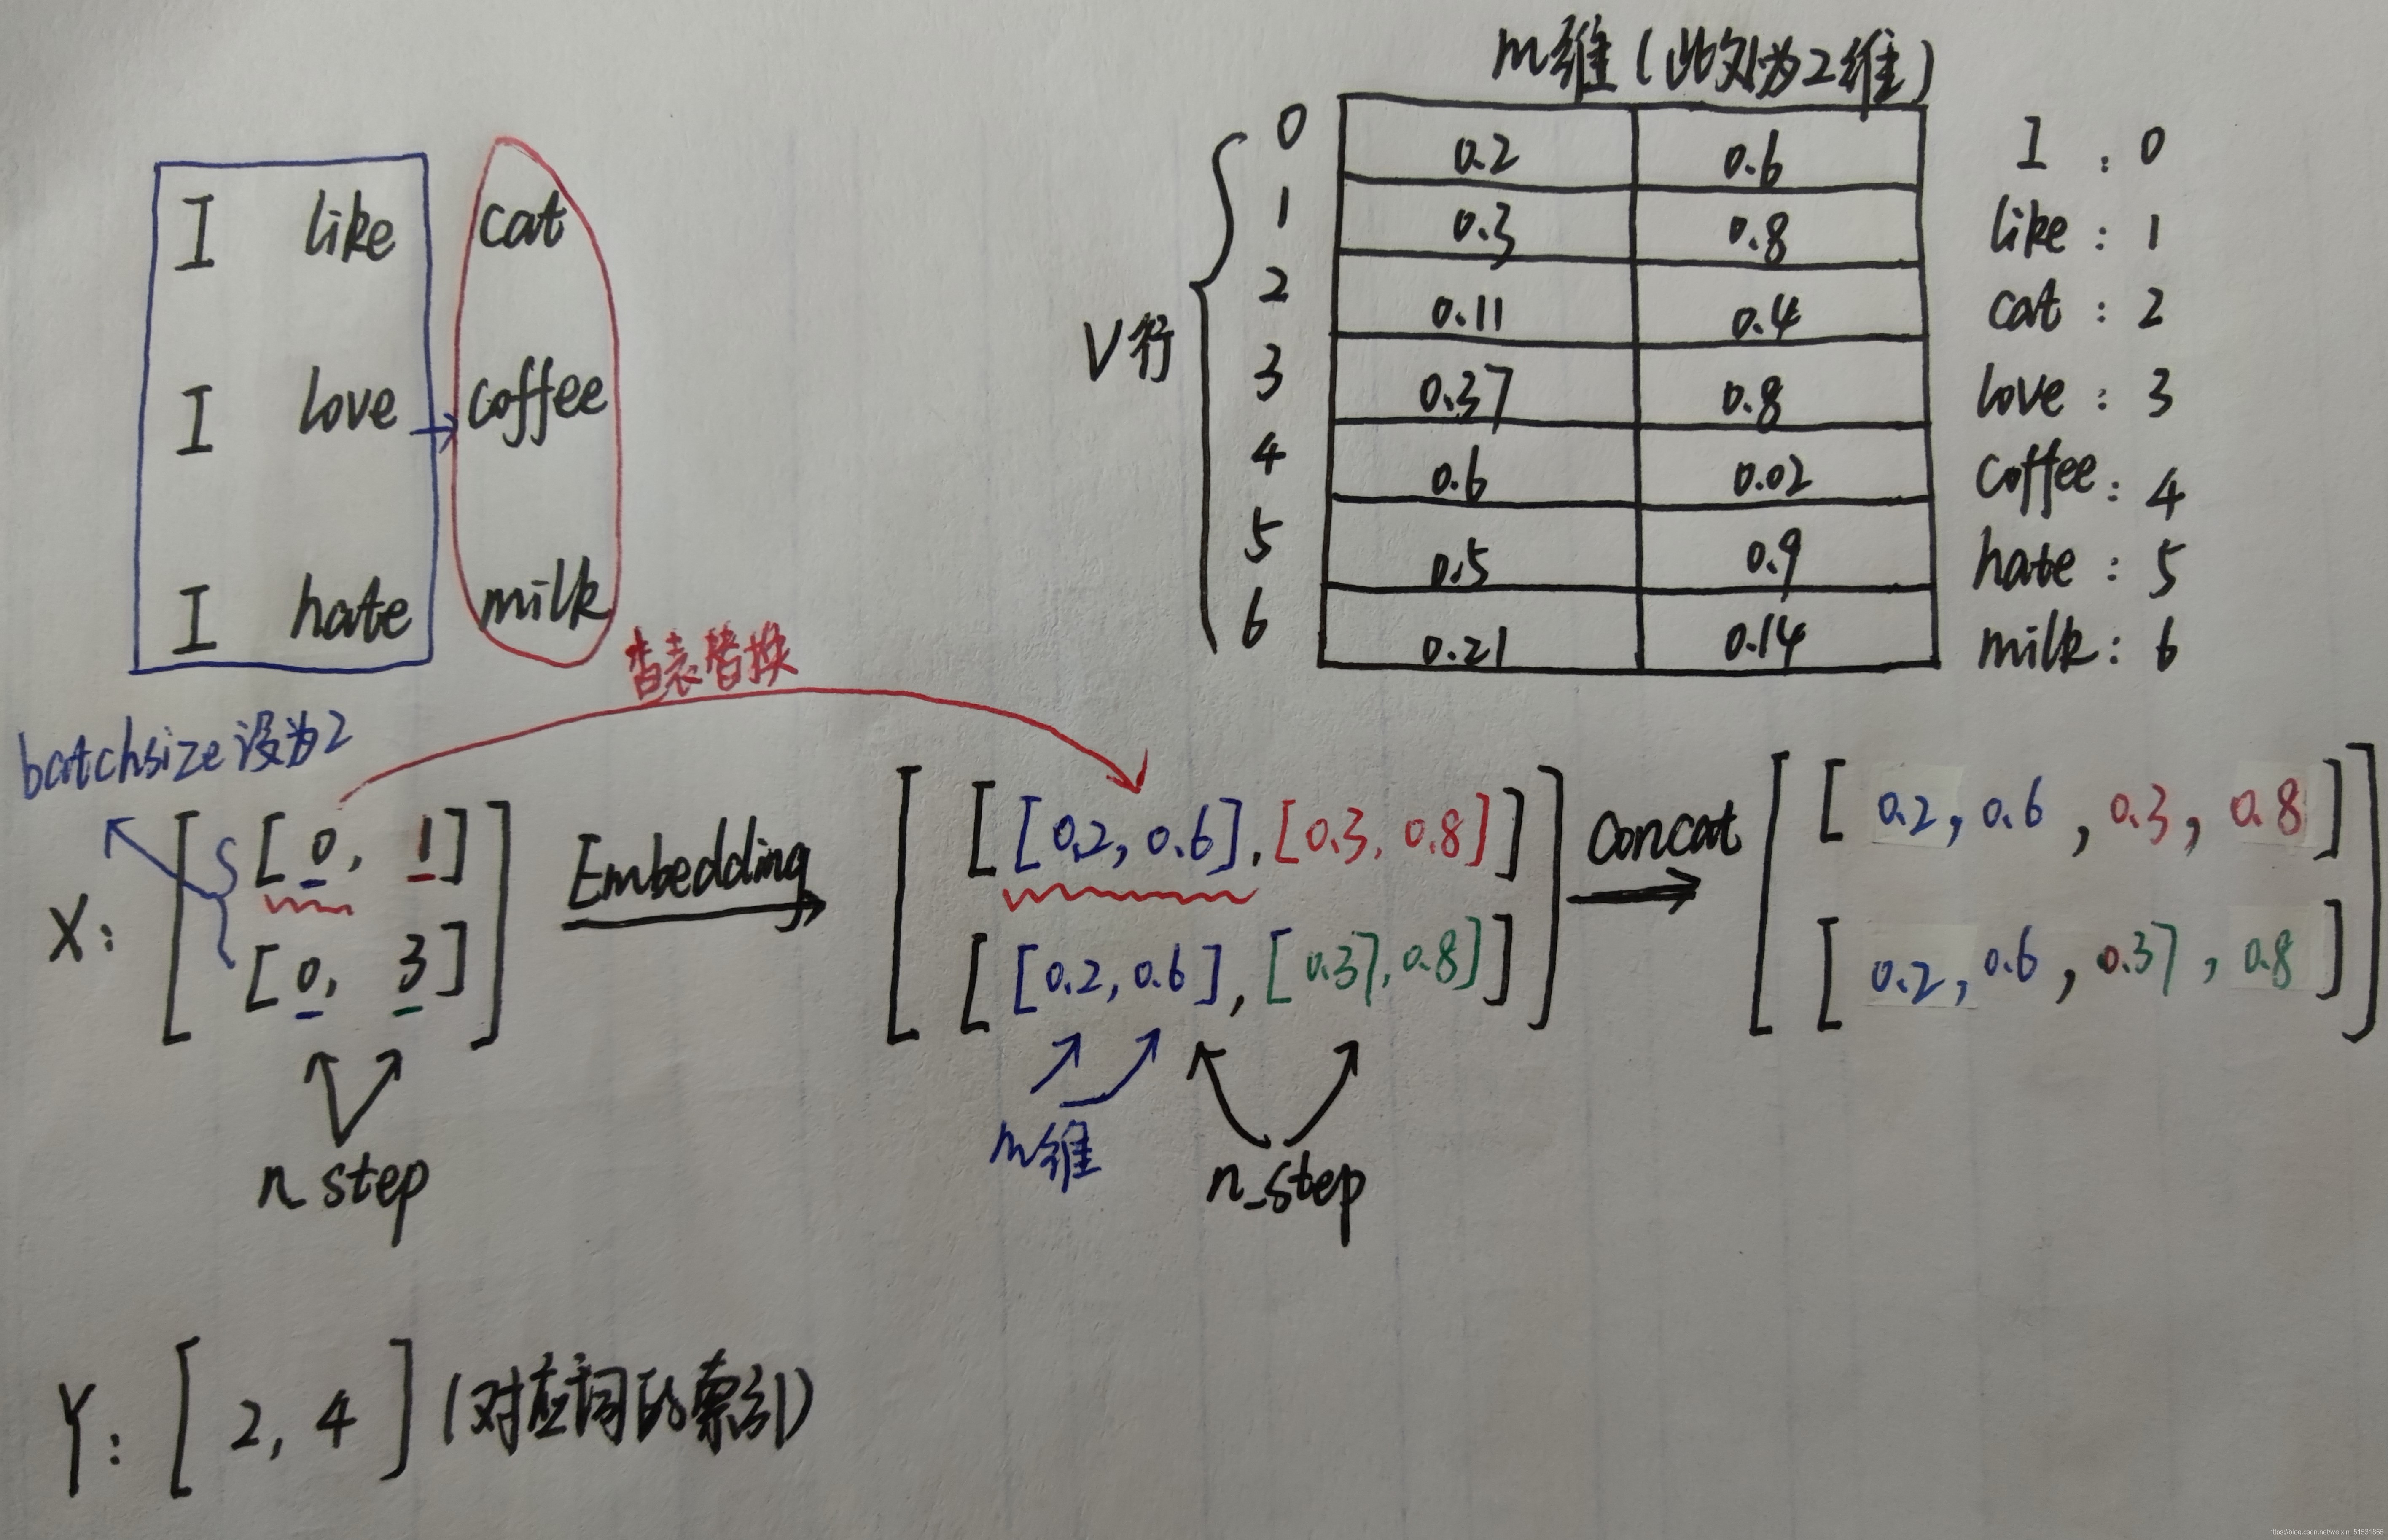 I like cat
I love coffee
I hate milk
m维(此处为2维)
V行
0 0.2 0.6 I : 0
1 0.3 0.8 like : 1
2 0.11 0.4 cat : 2
3 0.37 0.8 love : 3
4 0.6 0.02 coffee : 4
5 0.5 0.9 hate : 5
6 0.21 0.14 milk : 6
查表替换
batchsize设为2
X:
[[0, 1]
[0, 3]]
n_step
Embedding
[[[0.2, 0.6], [0.3, 0.8]]
[[0.2, 0.6], [0.37, 0.8]]]
m维
n_step
concat
[[0.2, 0.6, 0.3, 0.8]
[0.2, 0.6, 0.37, 0.8]]
Y: [2, 4] (对应词的索引)
https://blog.csdn.net/weixin_51531865